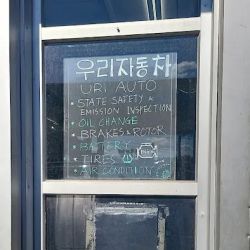 우리자동차
URI AUTO
• STATE SAFETY &
EMISSION INSPECTION
• OIL CHANGE
• BRAKES & ROTOR
• BATTERY
• TIRES
• AIR CONDITION